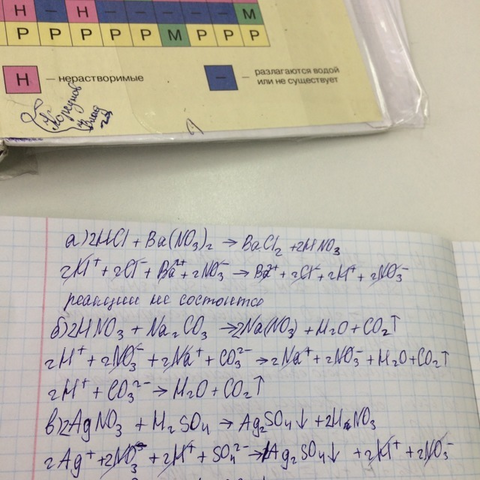 Н – Н – – – – – – М
Р Р Р Р Р Р М Р Р Р
Н – нерастворимые
– – разлагаются водой
или не существует
а) 2HCl + Ba(NO₃)₂ → BaCl₂ + 2HNO₃
2H⁺ + 2Cl⁻ + Ba²⁺ + 2NO₃⁻ → Ba²⁺ + 2Cl⁻ + 2H⁺ + 2NO₃⁻
реакции не состоится
б) 2HNO₃ + Na₂CO₃ → 2Na(NO₃) + H₂O + CO₂↑
2H⁺ + 2NO₃⁻ + 2Na⁺ + CO₃²⁻ → 2Na⁺ + 2NO₃⁻ + H₂O + CO₂↑
2H⁺ + CO₃²⁻ → H₂O + CO₂↑
в) 2AgNO₃ + H₂SO₄ → Ag₂SO₄↓ + 2HNO₃
2Ag⁺ + 2NO₃⁻ + 2H⁺ + SO₄²⁻ → Ag₂SO₄↓ + 2H⁺ + 2NO₃⁻